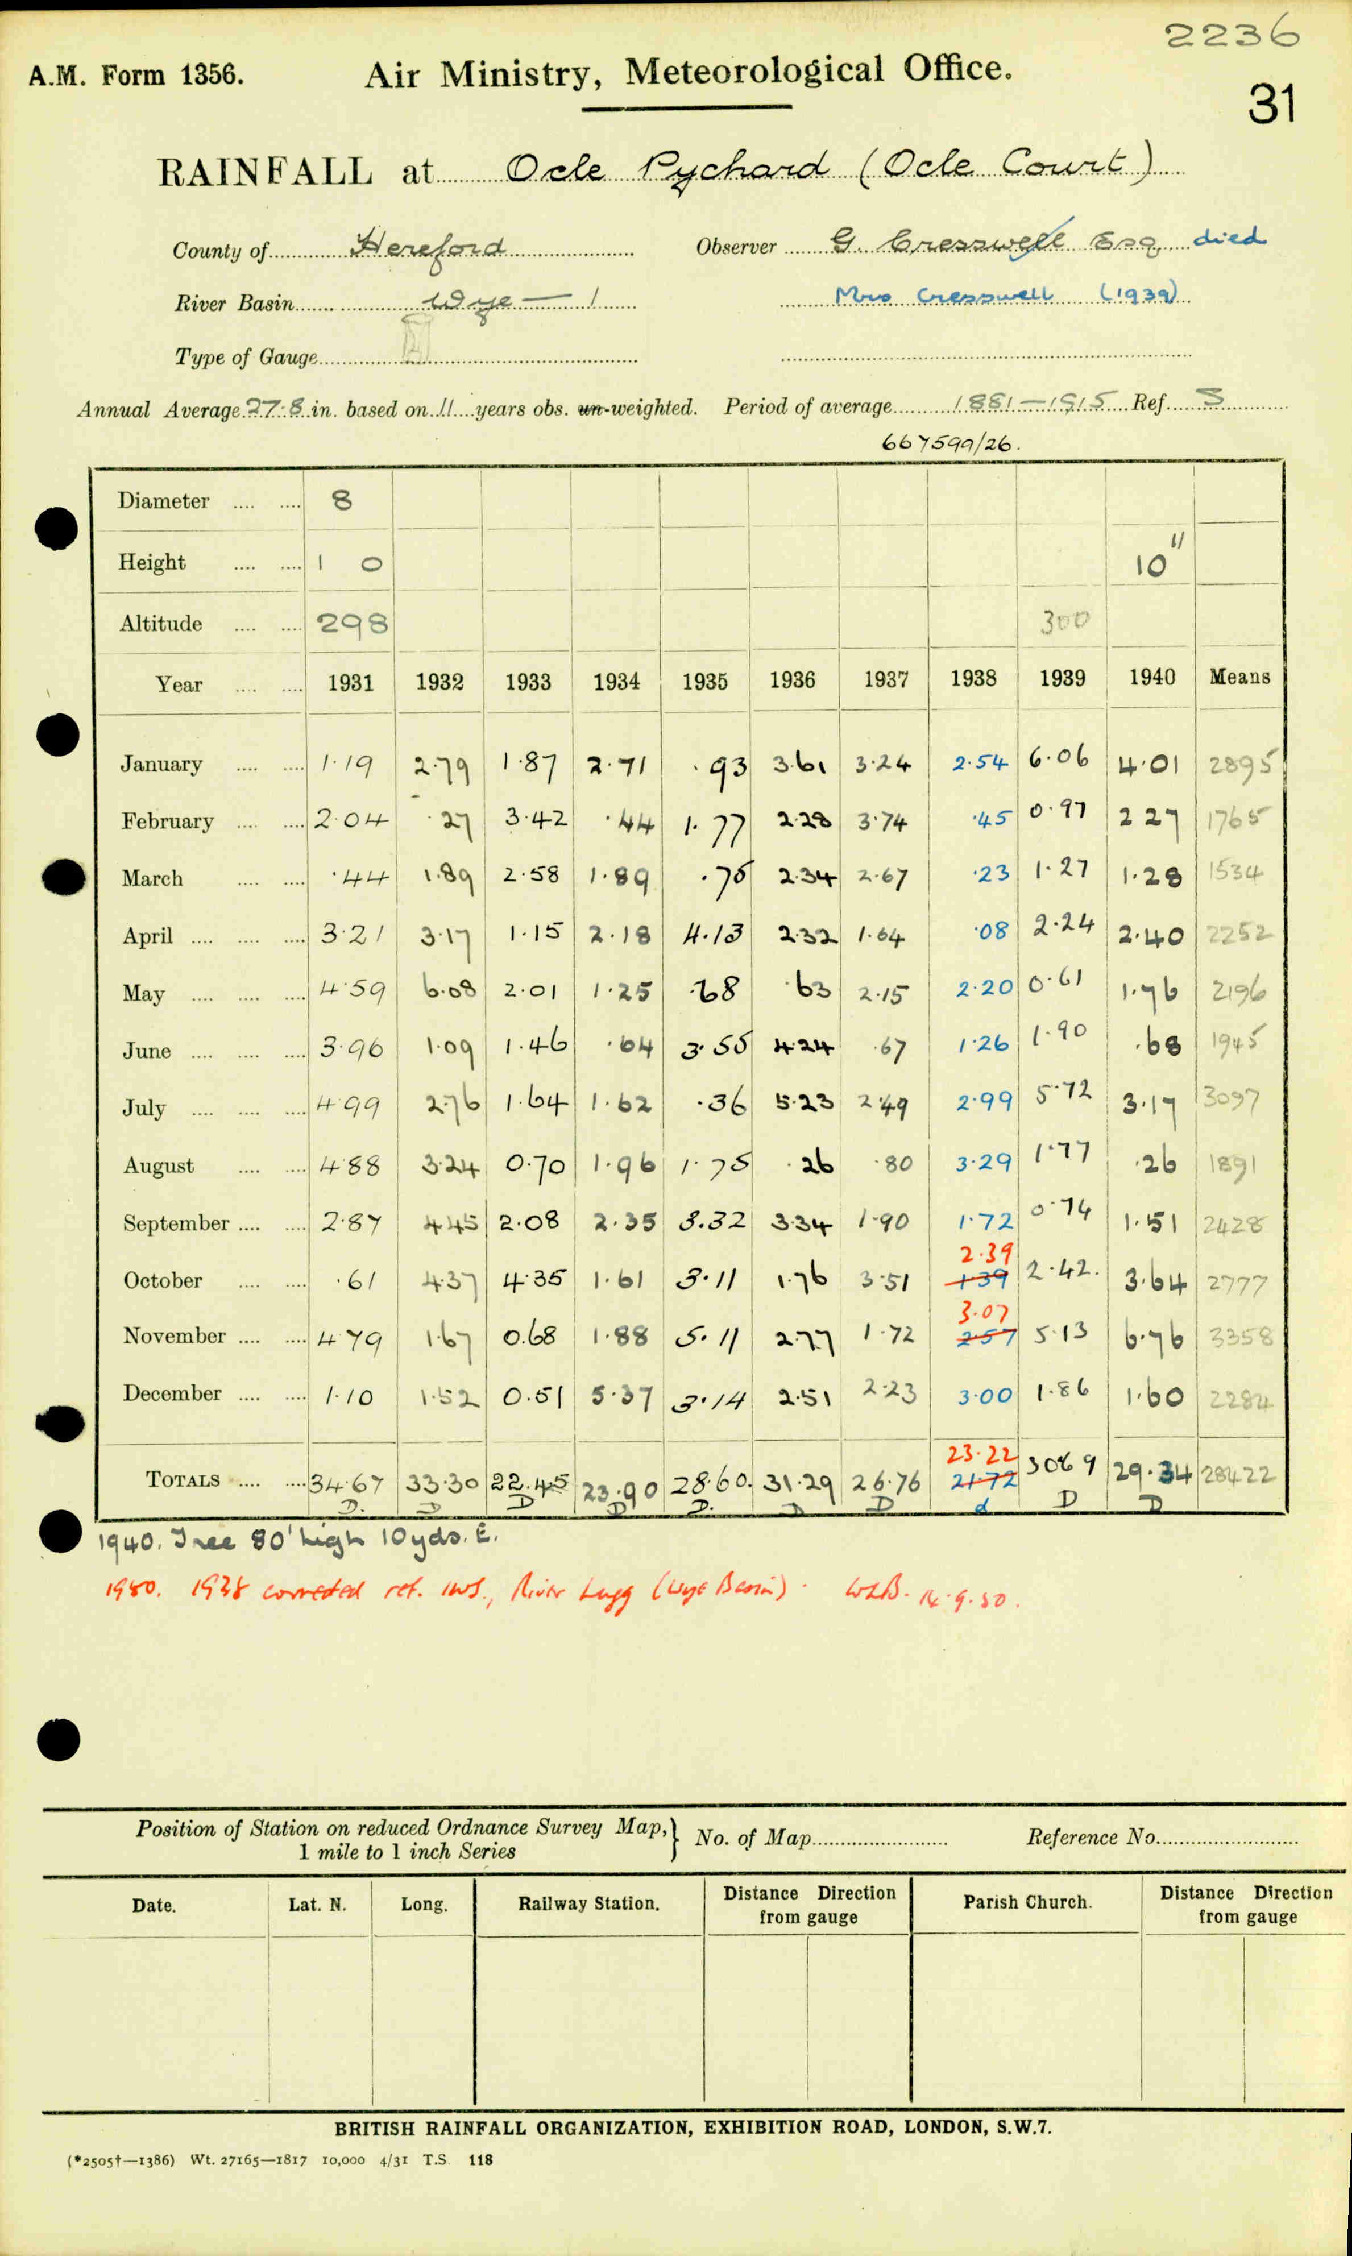 2236
A.M. Form 1356. Air Ministry, Meteorological Office.
31
RAINFALL at Ocle Pychard (Ocle Court)
County of Hereford Observer G. Cresswell Esq died
River Basin Wye — 1 Mrs Cresswell (1939)
Type of Gauge
Annual Average 27.8 in. based on 11 years obs. un-weighted. Period of average 1881—1915 Ref. S
667599/26.
Diameter 8
Height 1 0 10"
Altitude 298 300
Year 1931 1932 1933 1934 1935 1936 1937 1938 1939 1940 Means
January 1.19 2.79 1.87 2.71 .93 3.61 3.24 2.54 6.06 4.01 2895
February 2.04 .27 3.42 .44 1.77 2.28 3.74 .45 0.97 2 27 1765
March .44 1.89 2.58 1.89 .75 2.34 2.67 .23 1.27 1.28 1534
April 3.21 3.17 1.15 2.18 4.13 2.32 1.64 .08 2.24 2.40 2252
May 4.59 6.08 2.01 1.25 .68 .63 2.15 2.20 0.61 1.76 2196
June 3.96 1.09 1.46 .64 3.55 4.24 .67 1.26 1.90 .68 1945
July 4.99 2.76 1.64 1.62 .36 5.23 2.49 2.99 5.72 3.17 3097
August 4.88 3.24 0.70 1.96 1.75 .26 .80 3.29 1.77 .26 1891
September 2.87 4.45 2.08 2.35 3.32 3.34 1.90 1.72 0.74 1.51 2428
2.39
October .61 4.37 4.35 1.61 3.11 1.76 3.51 1.39 2.42. 3.64 2777
3.07
November 4.79 1.67 0.68 1.88 5.11 2.77 1.72 2.57 5.13 6.76 3358
December 1.10 1.52 0.51 5.37 3.14 2.51 2.23 3.00 1.86 1.60 2284
23.22
TOTALS 34.67 33.30 22.45 23.90 28.60. 31.29 26.76 21.72 3069 29.34 28422
D. D D D D. D D d D D
1940. Tree 80' high 10 yds. E.
1950. 1938 corrected ref. IWS., River Lugg (Wye Basin). WLB. 14.9.50.
Position of Station on reduced Ordnance Survey Map, } No. of Map Reference No.
1 mile to 1 inch Series
Date. Lat. N. Long. Railway Station. Distance Direction from gauge Parish Church. Distance Direction from gauge
BRITISH RAINFALL ORGANIZATION, EXHIBITION ROAD, LONDON, S.W.7.
(*2505†—1386) Wt. 27165—1817 10,000 4/31 T.S. 118